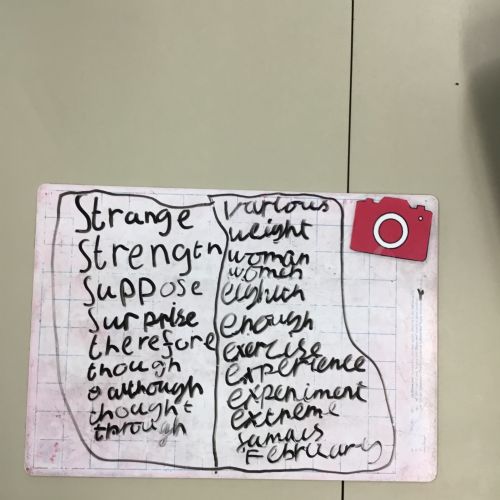 Strange
Strength
Suppose
Surprise
therefore
though
although
thought
through
various
weight
woman
women
eighth
enough
exercise
experience
experiment
extreme
February